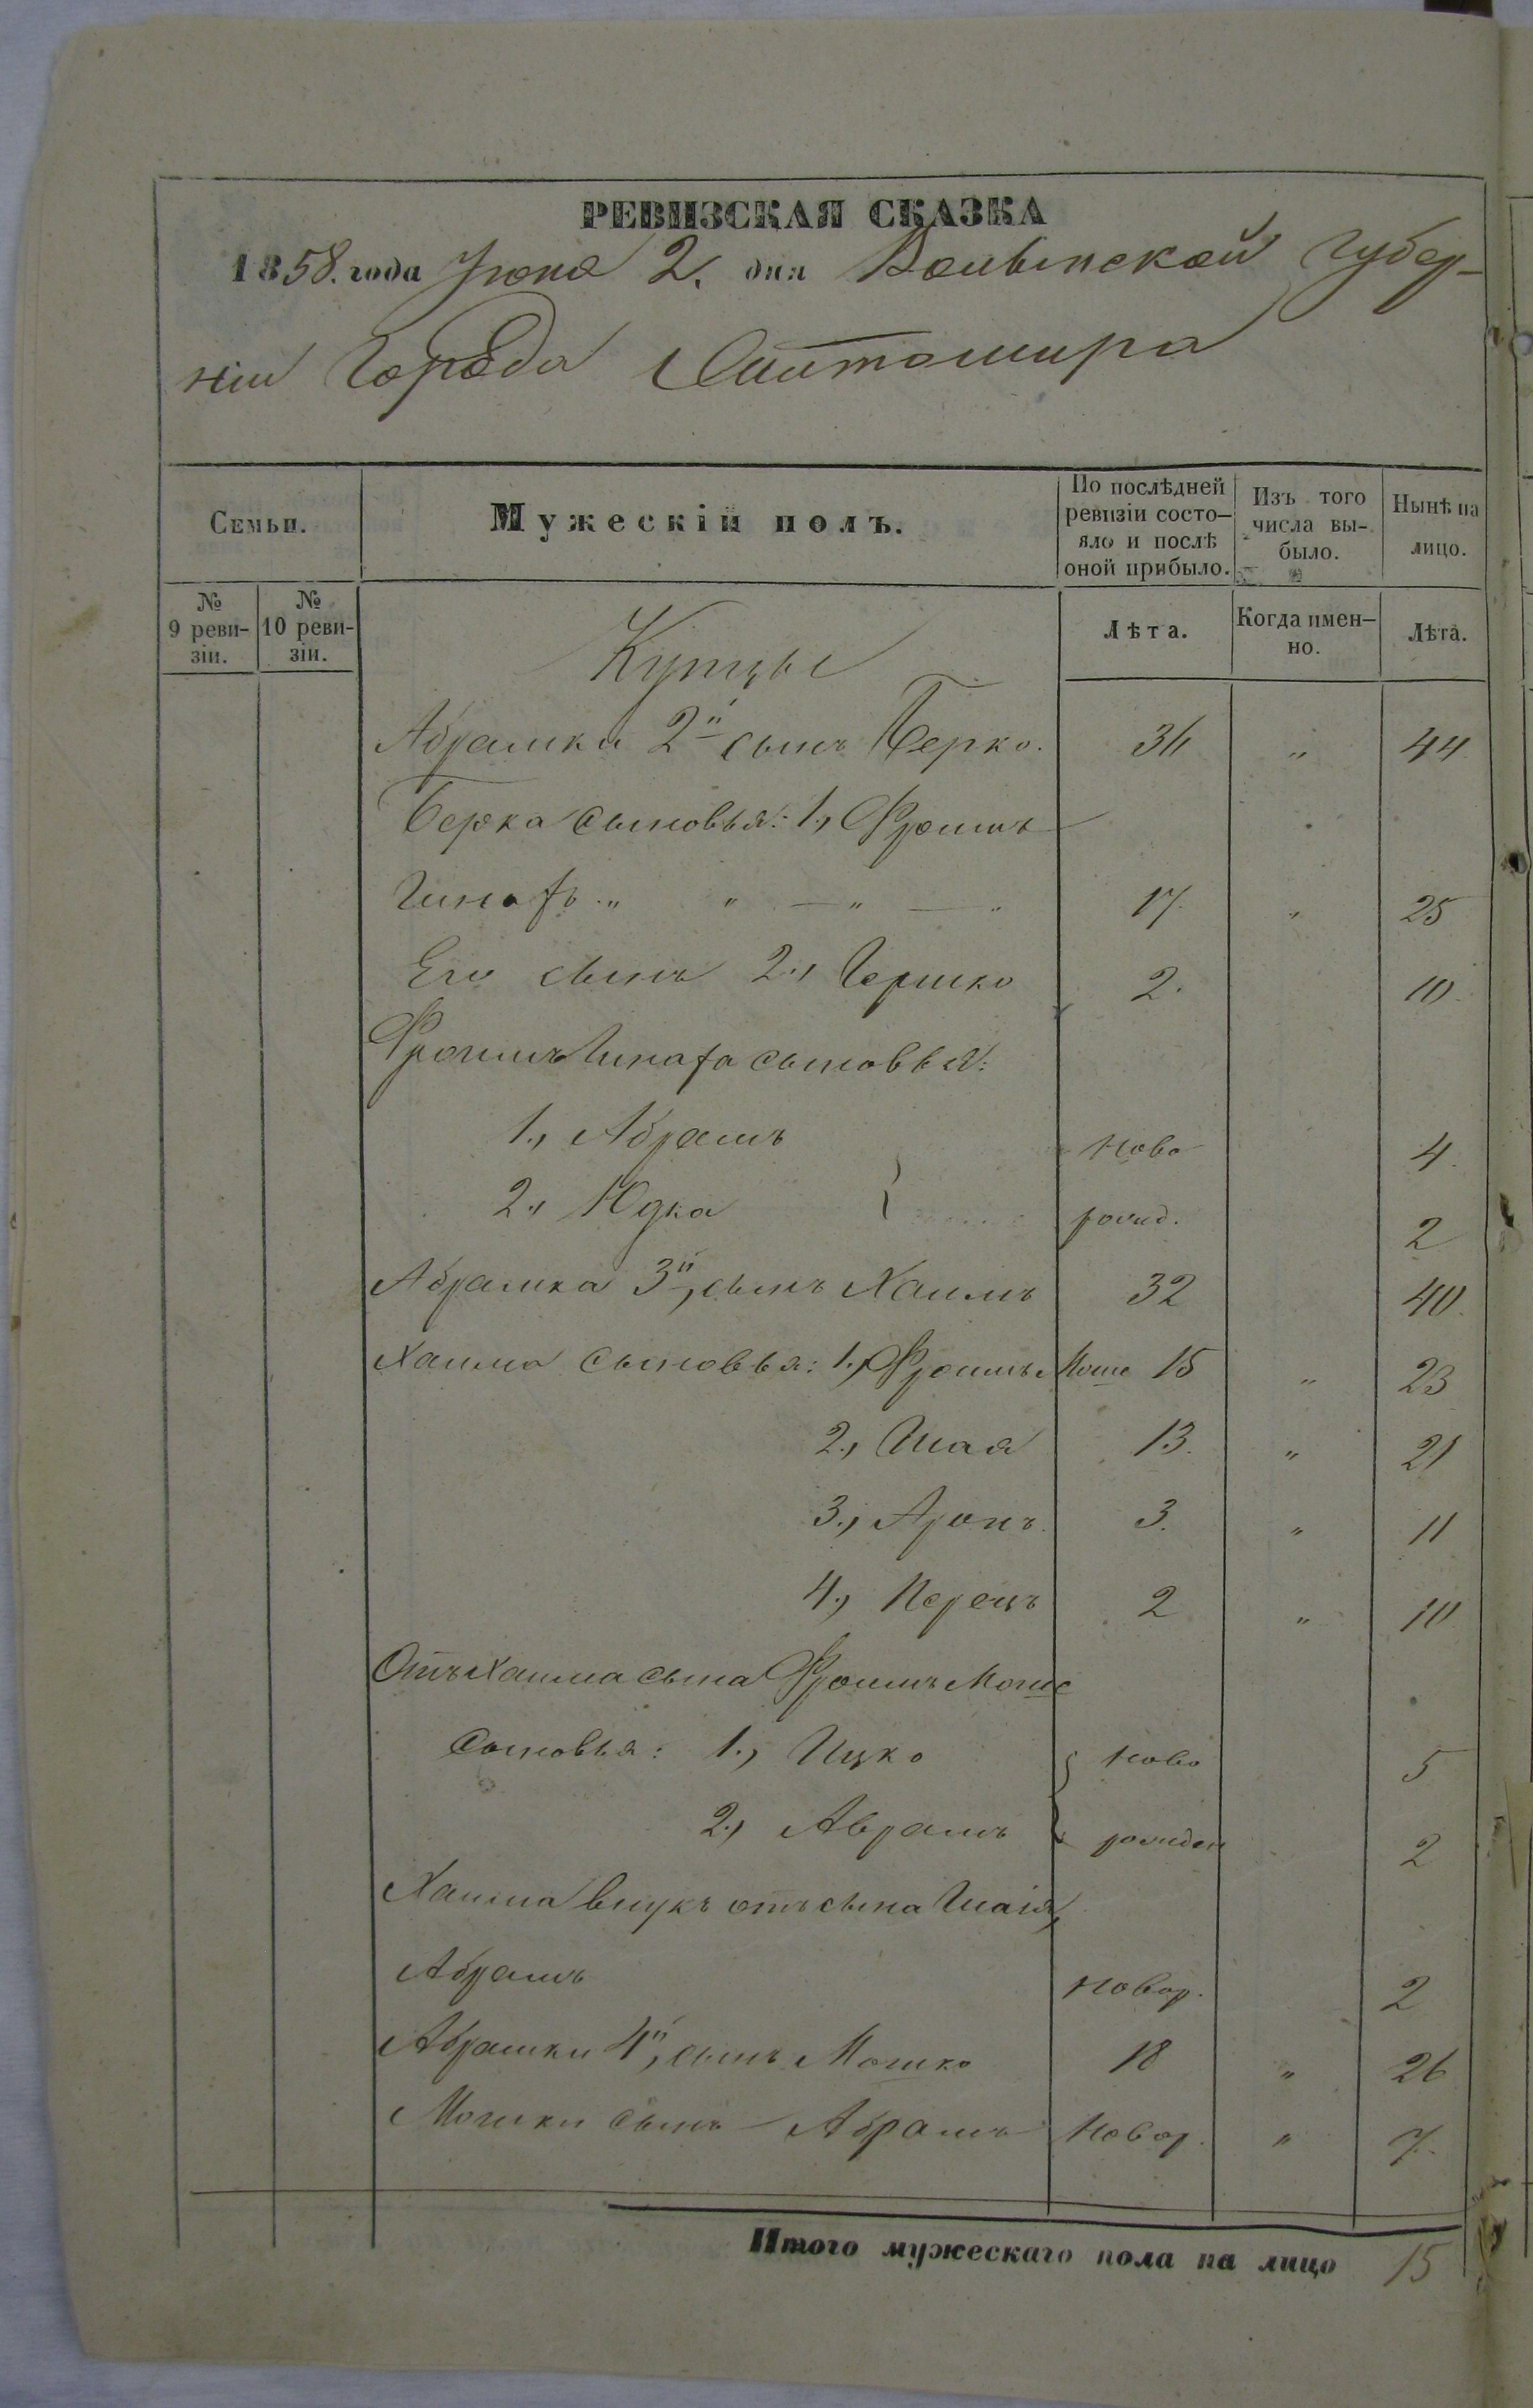 РЕВИЗСКАЯ СКАЗКА
1858. года Іюня 2. дня Волынской Губер-
ніи Города Житомира
Семьи.
Мужескій полъ.
По послѣдней ревизіи состо-яло и послѣ оной прибыло.
Изъ того числа вы-было.
Нынѣ на лицо.
№ 9 реви-зіи.
№ 10 реви-зіи.
Лѣта.
Когда имен-но.
Лѣта.
Купцы
Абрамки 2й сынъ Берко. 36 " 44
Берка сыновья: 1, Фроимъ
" " — " — " 17. " 25
Его сынъ 2, Гершко 2. 10.
Фроимъ сыновья:
1, Абрамъ Ново 4.
2, Юдка рожд. 2
Абрамка 3й, сынъ Хаимъ 32 40.
Хаима сыновья: 1, Фроимъ Моше 15 " 23
2, Шая 13. " 21
3, Аронъ. 3. " 11
4, Перецъ 2 " 10
Отъ Хаима сына Фроимъ Моше
сыновья: 1, Ицко Ново 5
2, Аврамъ рожден 2
Хаима внукъ отъ сына Шаія,
Абрамъ Новор. 2
Абрамки 4й, сынъ Мошко 18 " 26
Мошки сынъ Абрамъ Новор. " 7.
Итого мужескаго пола на лицо 15